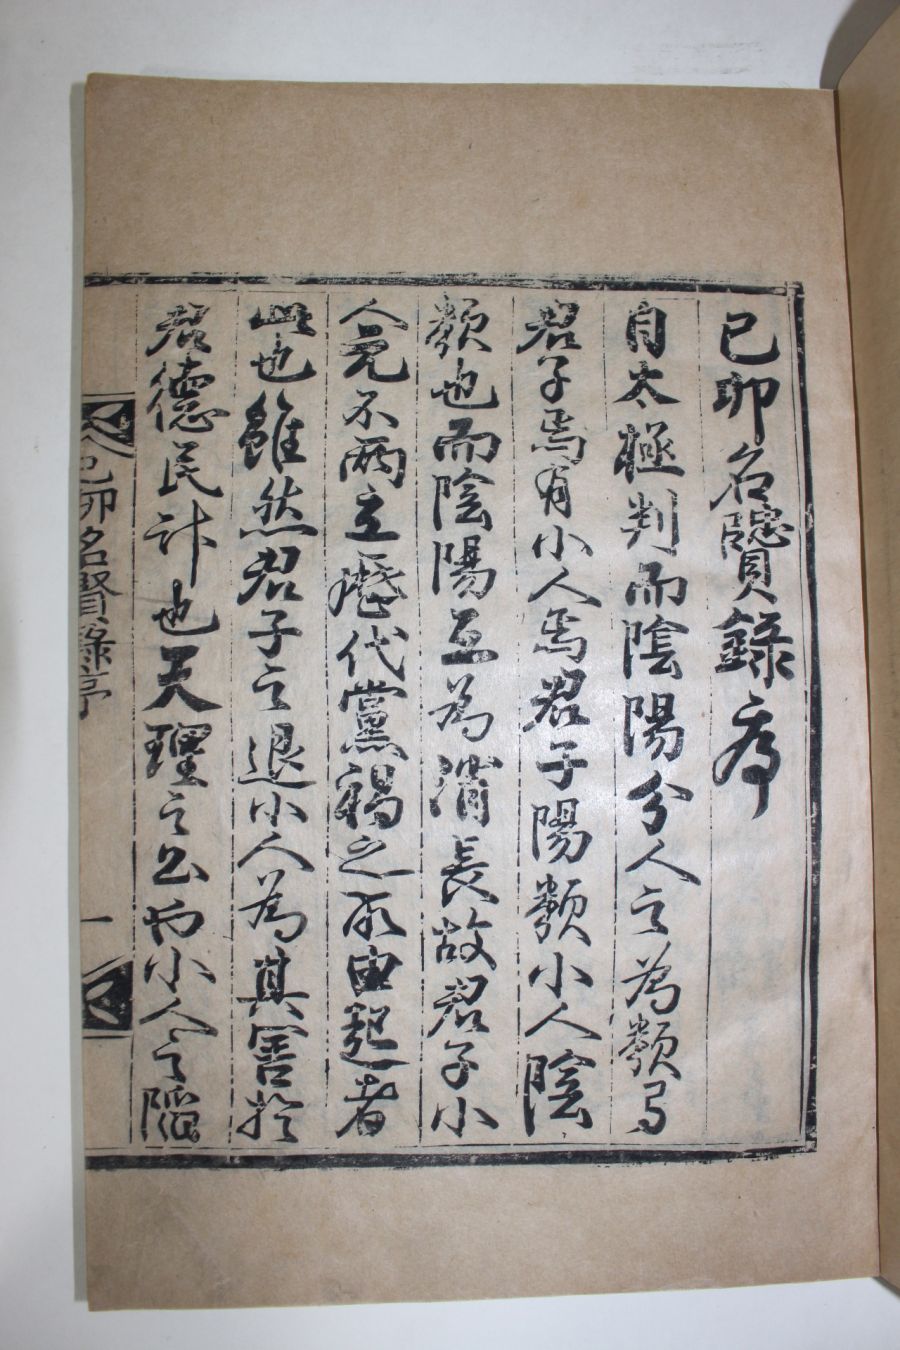 己卯名賢錄序
自太極判而陰陽分人之為類
君子焉有小人焉君子陽類小人陰
類也而陰陽互為消長故君子小
人元不兩立歷代黨禍之所由起者
此也雖然君子之退小人為其害於
君德民計也天理之公而小人之陷
己卯名賢錄序
一